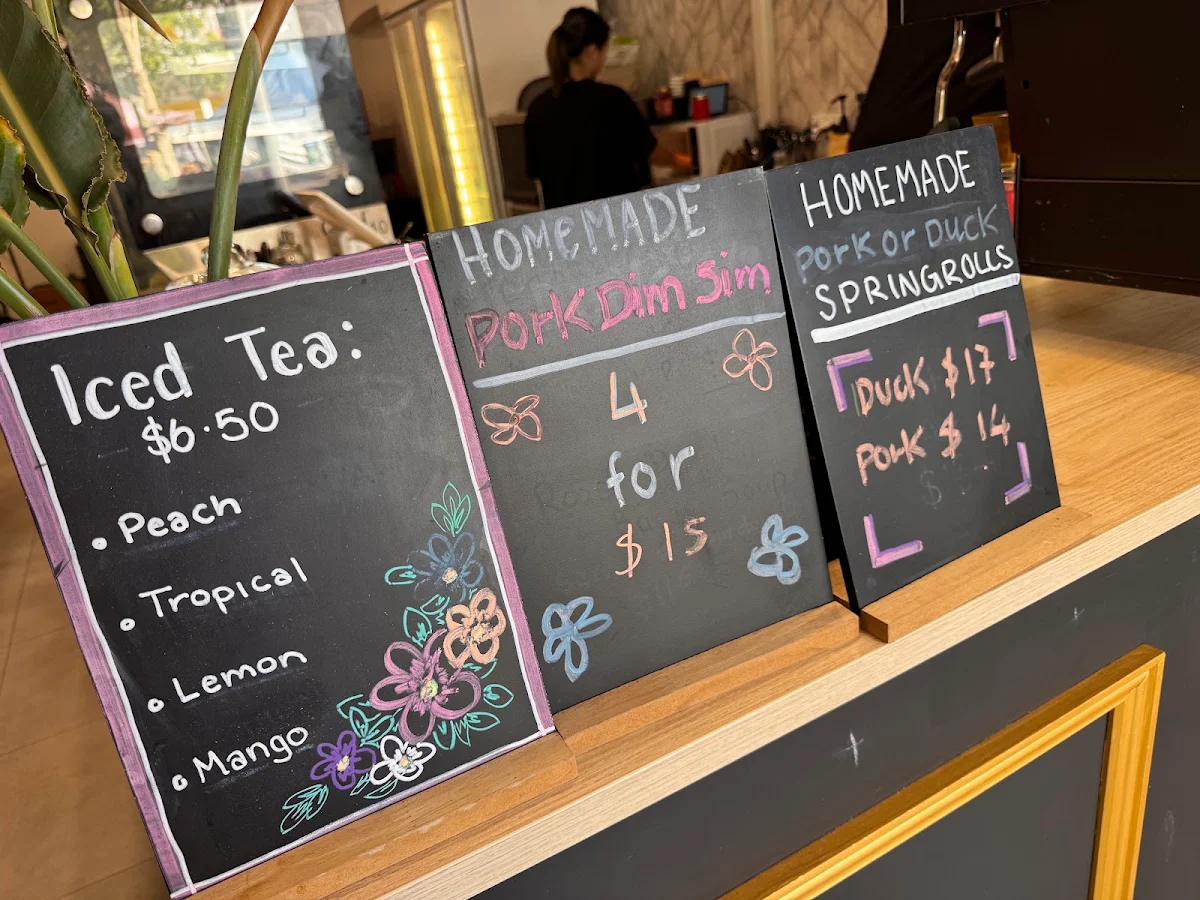 Iced Tea:
$6.50
Peach
Tropical
Lemon
Mango
HOMEMADE
Pork Dim Sim
4
for
$15
HOMEMADE
Pork or Duck
SPRINGROLLS
Duck $17
Pork $14